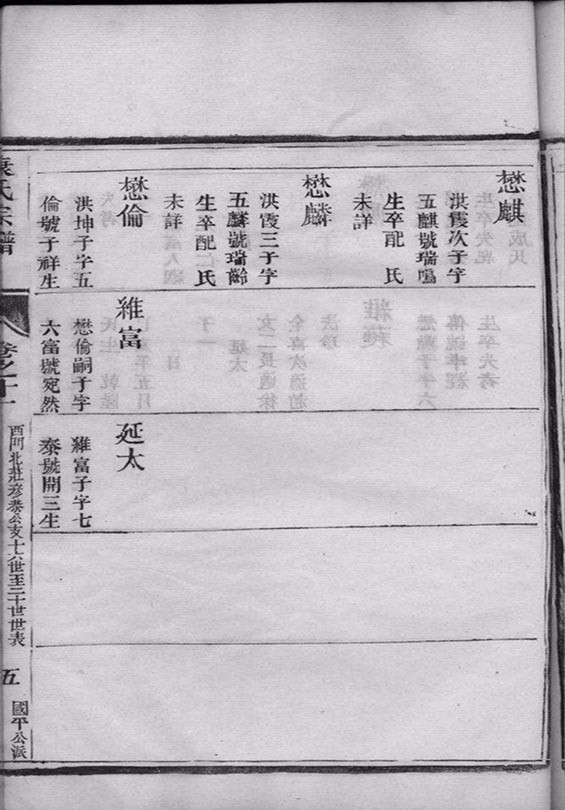 懋麒
洪霞次子字
五麒號瑞鳴
生卒配　氏
未詳
懋麟
洪霞三子字
五麟號瑞齡
生卒配　氏
未詳
懋倫
洪坤子字五
倫號子祥生
維富
懋倫嗣子字
六富號宛然
延太
維富子字七
泰號開三生
氏宗譜
卷之十一
西門北莊彥恭公支十六世至二十世世表
五
國平公派